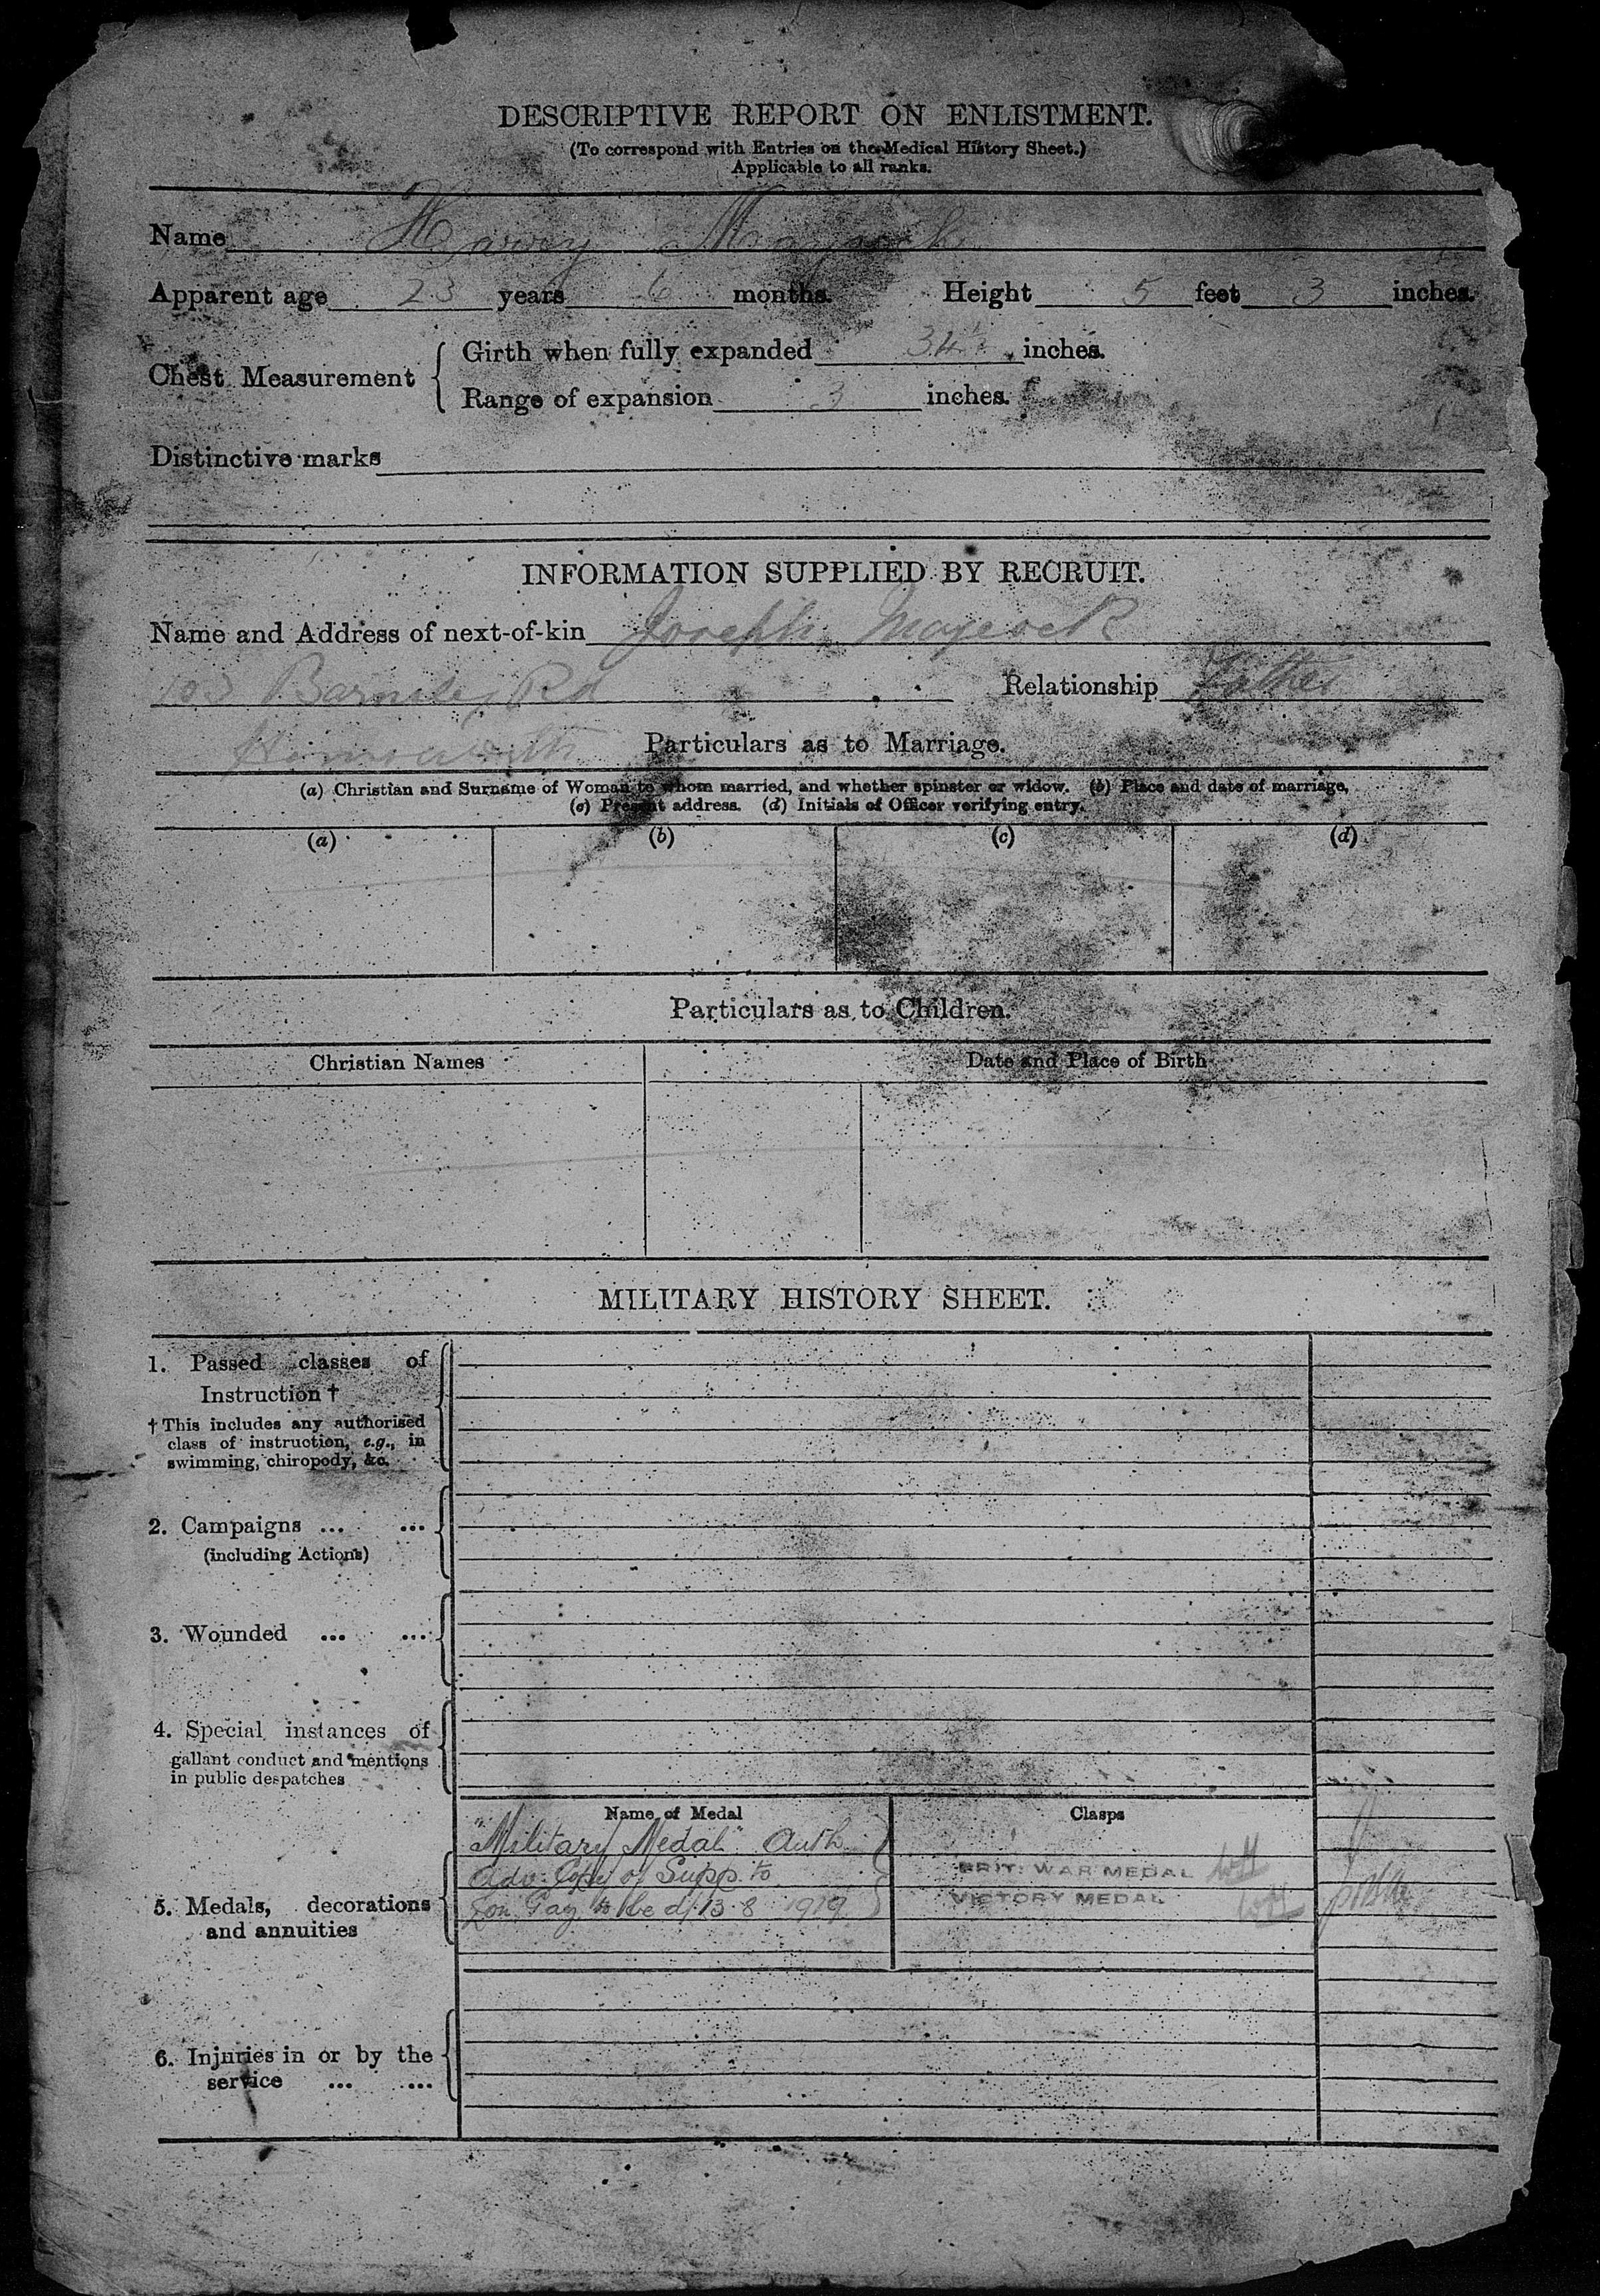 DESCRIPTIVE REPORT ON ENLISTMENT.
(To correspond with Entries on the Medical History Sheet.)
Applicable to all ranks.
Name Harvey Maycock
Apparent age 23 years 6 months. Height 5 feet 3 inches.
Girth when fully expanded 34½ inches.
Chest Measurement
Range of expansion 3 inches.
Distinctive marks
INFORMATION SUPPLIED BY RECRUIT.
Name and Address of next-of-kin Joseph Maycock
103 Barnsley Rd Relationship Father
Hemsworth Particulars as to Marriage.
(a) Christian and Surname of Woman to whom married, and whether spinster or widow. (b) Place and date of marriage,
(c) Present address. (d) Initials of Officer verifying entry.
(a) (b) (c) (d)
Particulars as to Children.
Christian Names Date and Place of Birth
MILITARY HISTORY SHEET.
1. Passed classes of
Instruction †
† This includes any authorised
class of instruction, e.g., in
swimming, chiropody, &c.
2. Campaigns ... ...
(including Actions)
3. Wounded ... ...
4. Special instances of
gallant conduct and mentions
in public despatches
Name of Medal Clasps
"Military Medal" Auth
Adv: Copy of Supp. to BRIT. WAR MEDAL
Lon. Gaz. to be d/13.8.1919 VICTORY MEDAL
5. Medals, decorations
and annuities
6. Injuries in or by the
service ... ...